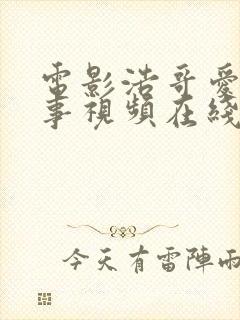 電影浩哥愛
事視頻在綫
今天有雷陣雨